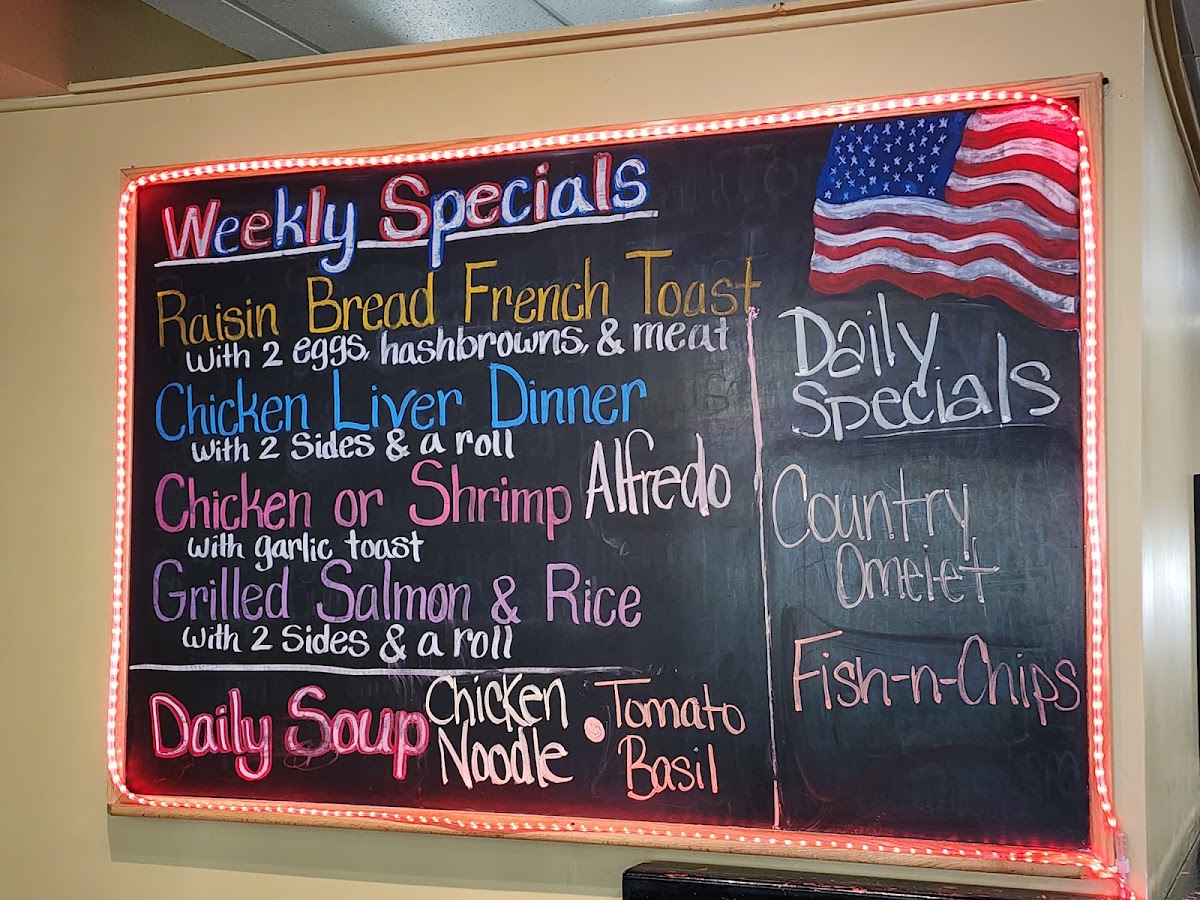 Weekly Specials
Raisin Bread French Toast
with 2 eggs, hashbrowns, & meat
Chicken Liver Dinner
with 2 Sides & a roll
Chicken or Shrimp Alfredo
with garlic toast
Grilled Salmon & Rice
with 2 Sides & a roll
Daily Soup
Chicken
Noodle
• Tomato
Basil
Daily
Specials
Country
Omelet
Fish-n-Chips